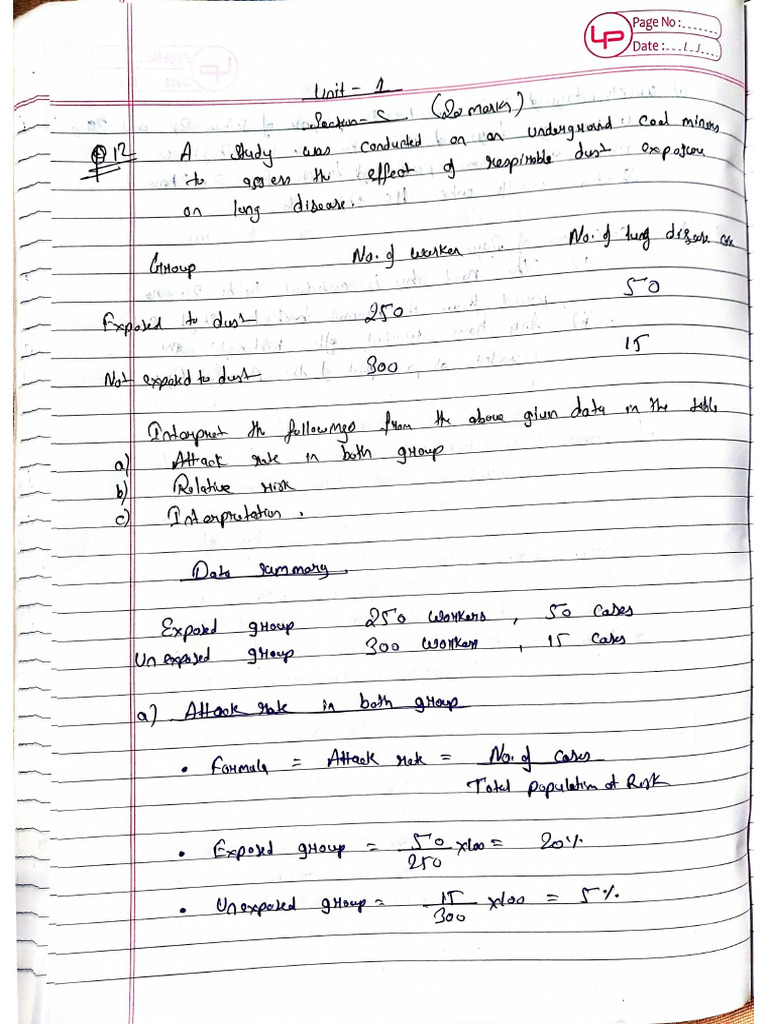 LP
Page No :......
Date :... / . / ....
Unit - 1
Section - C (20 marks)
Q 12 A study was conducted on an underground coal miners
to assess the effect of respirable dust exposure
on lung disease.
Group No. of worker No. of lung disease case
Exposed to dust 250 50
Not exposed to dust 300 15
Interpret the followings from the above given data in the table
a) Attack rate in both group
b) Relative risk
c) Interpretation.
Data summary.
Exposed group 250 workers, 50 cases
Unexposed group 300 workers, 15 cases
a) Attack rate in both group
• Formula = Attack rate = No. of cases
Total population at Risk
• Exposed group = 50/250 x100 = 20%
• Unexposed group = 15/300 x100 = 5%